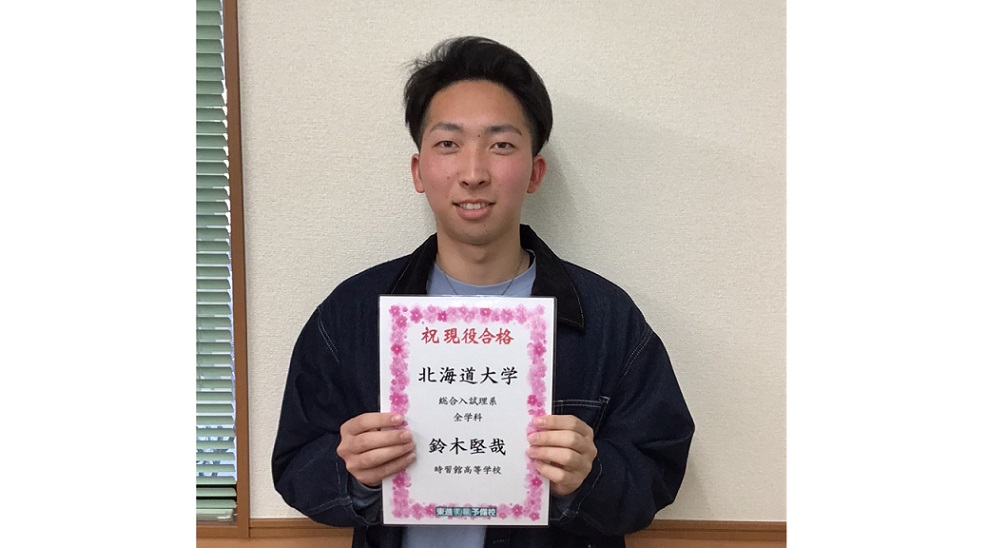 祝 現役合格
北海道大学
総合入試理系
全学科
鈴木堅哉
時習館高等学校
東進衛星予備校